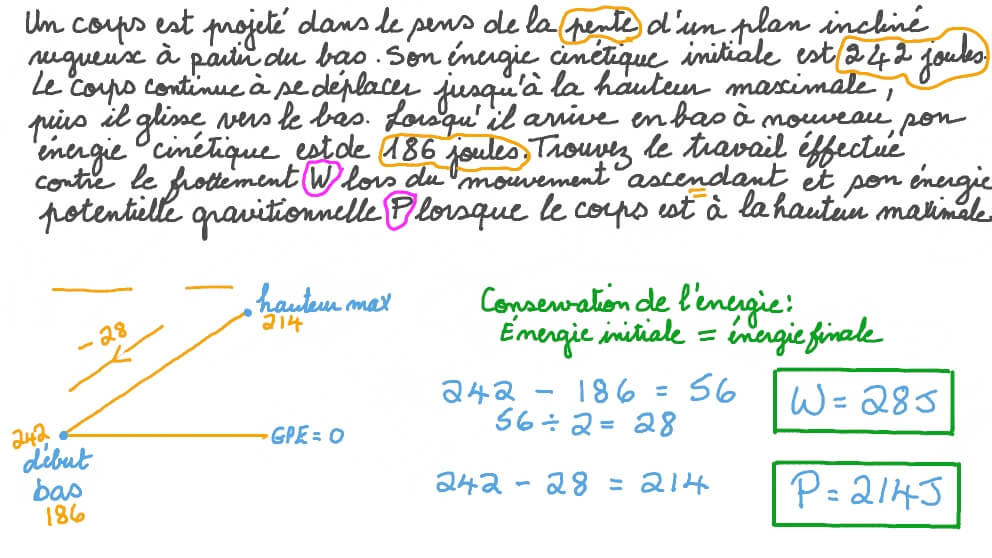 Un corps est projeté dans le sens de la pente d'un plan incliné
rugueux à partir du bas. Son énergie cinétique initiale est 242 joules.
Le corps continue à se déplacer jusqu'à la hauteur maximale,
puis il glisse vers le bas. Lorsqu'il arrive en bas à nouveau, son
énergie cinétique est de 186 joules. Trouvez le travail éffectué
contre le frottement W lors du mouvement ascendant et son énergie
potentielle gravitionnelle P lorsque le corps est à la hauteur maximale.
hauteur max
214
-28
242
début
bas
186
GPE = 0
Conservation de l'énergie:
Énergie initiale = énergie finale
242 - 186 = 56
56 ÷ 2 = 28
W = 28J
242 - 28 = 214
P = 214J